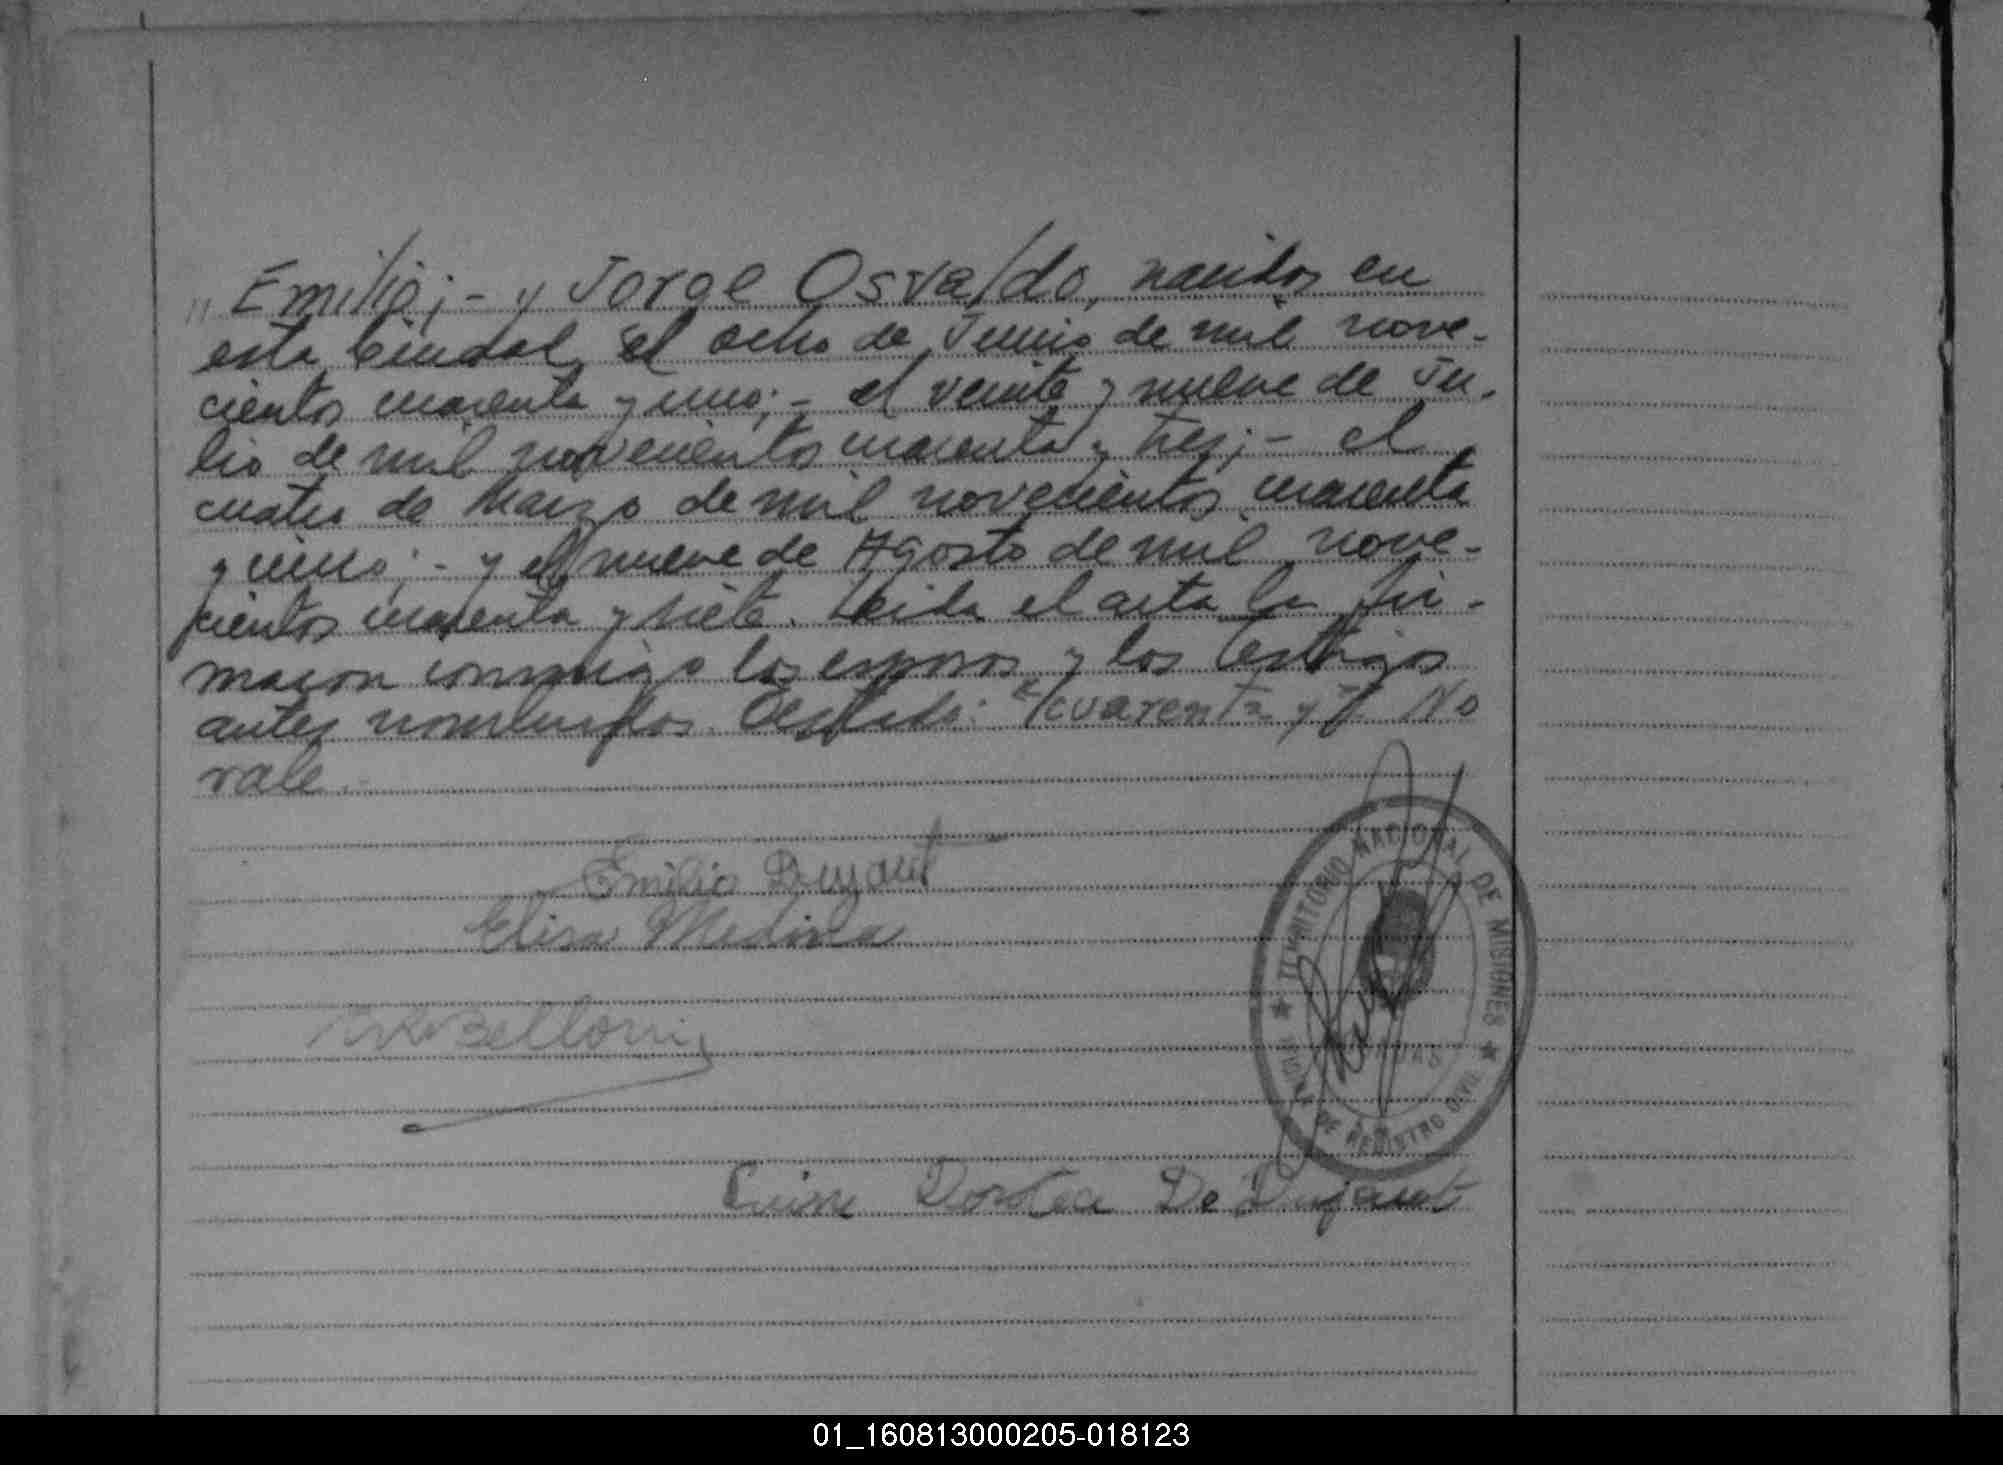 " Emilio;- y Jorge Osvaldo, nacidos en
esta Ciudad, el ocho de Junio de mil nove-
cientos cuarenta y uno;- el veinte y nueve de Ju-
lio de mil novecientos cuarenta y tres;- el
cuatro de Marzo de mil novecientos cuarenta
y cinco;- y el nueve de Agosto de mil nove-
cientos cuarenta y siete. Leida el acta la fir-
maron conmigo los esposos y los testigos
antes nombrados. Testado: "cuarenta y" No
vale.
Emilio Dujaut
Elisa Medina
Belloni
TERRITORIO NACIONAL DE MISIONES
DE REGISTRO CIVIL
De Dujaut
01_160813000205-018123